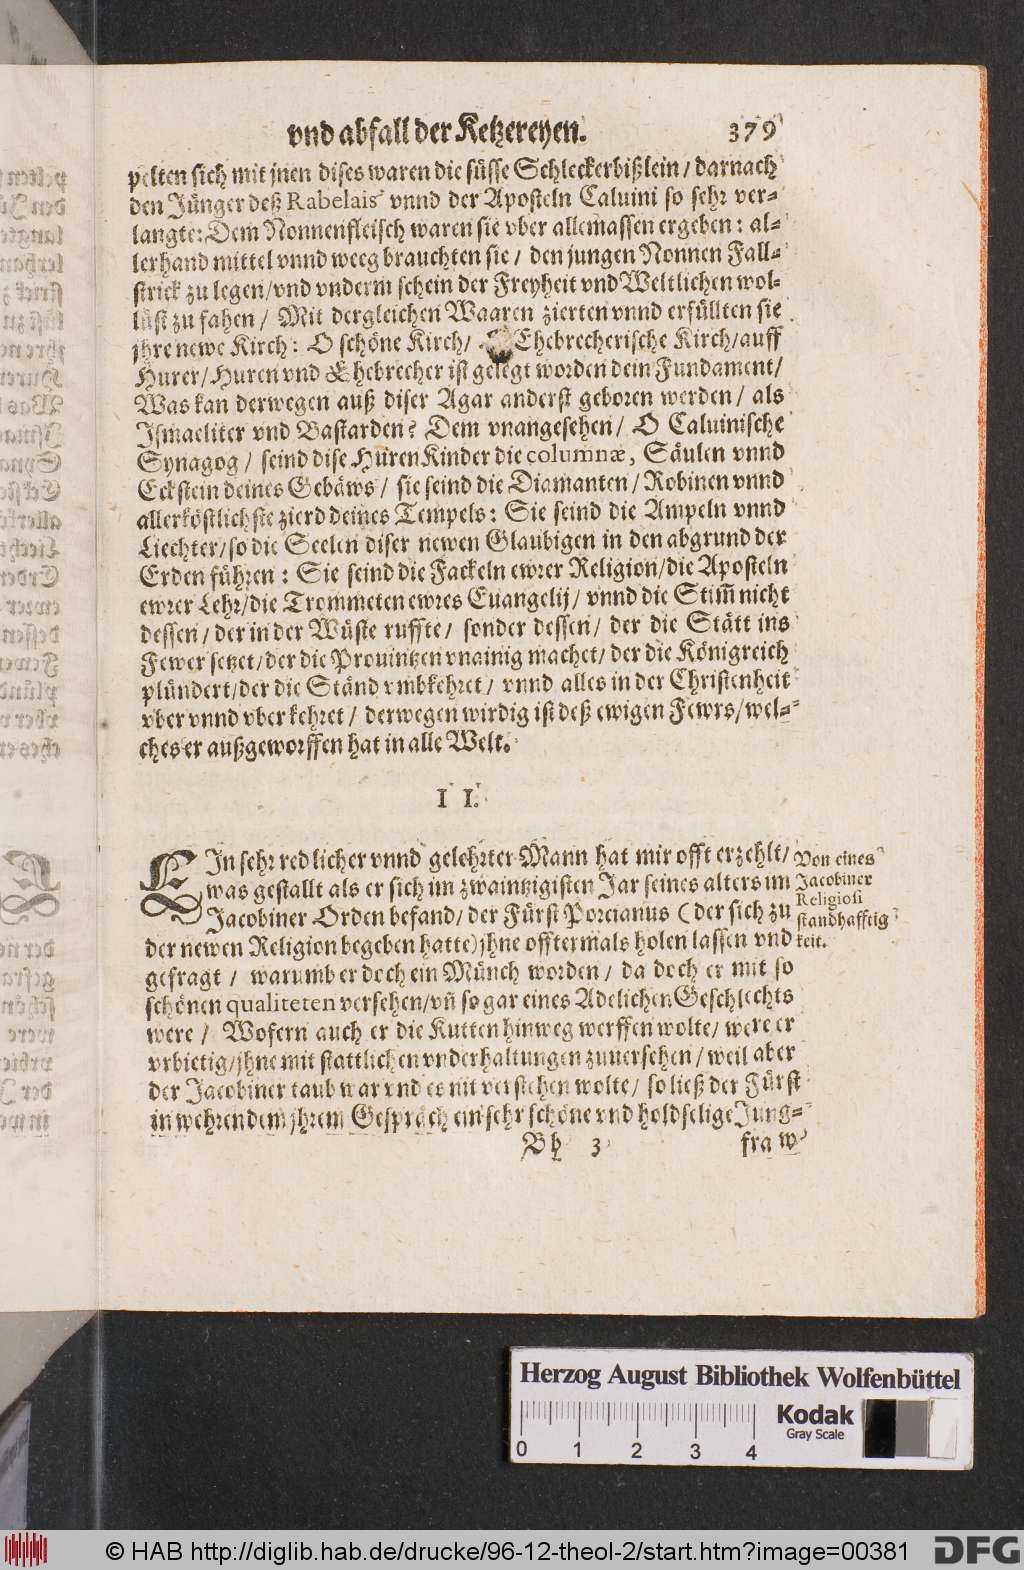 vnd abfall der Ketzereyen. 379
pelten sich mit jnen dises waren die süsse Schleckerbißlein / darnach
den Jünger deß Rabelais vnnd der Aposteln Caluini so sehr ver-
langte: Dem Nonnenfleisch waren sie vber allemassen ergeben : al-
lerhand mittel vnnd weeg brauchten sie / den jungen Nonnen Fall-
strick zu legen/vnd vnderm schein der Freyheit vnd Weltlichen wol-
lüst zu fahen / Mit dergleichen Waaren zierten vnnd erfüllten sie
jhre newe Kirch: O schöne Kirch/ Ehebrecherische Kirch/auff
Hurer/Huren vnd Ehebrecher ist gelegt worden dein Fundament/
Was kan derwegen auß diser Agar anderst geboren werden / als
Ismaeliter vnd Bastarden? Dem vnangesehen/ O Caluinische
Synagog / seind dise HurenKinder die columnæ, Säulen vnnd
Eckstein deines Gebäws / sie seind die Diamanten / Robinen vnnd
allerköstlichste zierd deines Tempels: Sie seind die Ampeln vnnd
Liechter/so die Seelen diser newen Glaubigen in den abgrund der
Erden führen : Sie seind die Fackeln ewrer Religion/die Aposteln
ewrer Lehr/die Trommeten ewres Euangelij/ vnnd die Stim̃ nicht
dessen / der in der Wüste ruffte/ sonder dessen/ der die Stätt ins
Fewer setzet/der die Prouintzen vnainig machet/ der die Königreich
plündert/der die Ständ vmbkehret / vnnd alles in der Christenheit
vber vnnd vber kehret / derwegen wirdig ist deß ewigen Fewrs/wel-
ches er außgeworffen hat in alle Welt.
I I.
EIn sehr redlicher vnnd gelehrter Mann hat mir offt erzehlt/
was gestallt als er sich im zwaintzigisten Jar seines alters im
Jacobiner Orden befand/ der Fürst Porcianus (der sich zu
der newen Religion begeben hatte) jhne offtermals holen lassen vnd
gefragt / warumb er doch ein Münch worden / da doch er mit so
schönen qualiteten versehen/vñ so gar eines Adelichen Geschlechts
were / Wofern auch er die Kutten hinweg werffen wolte/ were er
vrbietig/jhne mit stattlichen vnderhaltungen zuuersehen / weil aber
der Jacobiner taub war vnd es nit verstehen wolte/ so ließ der Fürst
in wehrendem jhrem Gespräch ein sehr schöne vnd holdselige Jung-
Von eines
Jacobiner
Religiosi
standhafftig
keit.
Bb 3 fraw
Herzog August Bibliothek Wolfenbüttel
0 1 2 3 4
Kodak
Gray Scale
© HAB http://diglib.hab.de/drucke/96-12-theol-2/start.htm?image=00381
DFG